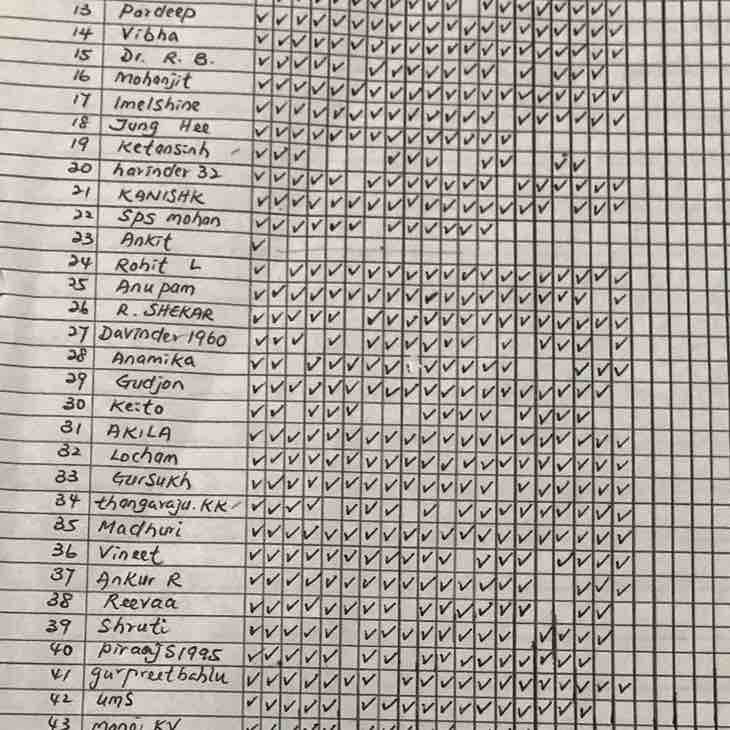 13 Pardeep
14 Vibha
15 Dr. R. B.
16 Mohanjit
17 Imelshine
18 Jung Hee
19 Ketansinh
20 harinder 32
21 KANISHK
22 SPS mohan
23 Ankit
24 Rohit L
25 Anupam
26 R. SHEKAR
27 Davinder 1960
28 Anamika
29 Gudjon
30 Keito
31 AKILA
32 Locham
33 Gursukh
34 thangaraju.KK
35 Madhuri
36 Vineet
37 Ankur R
38 Reevaa
39 Shruti
40 PiraajS1995
41 gurpreetbahlu
42 umS
43 KV